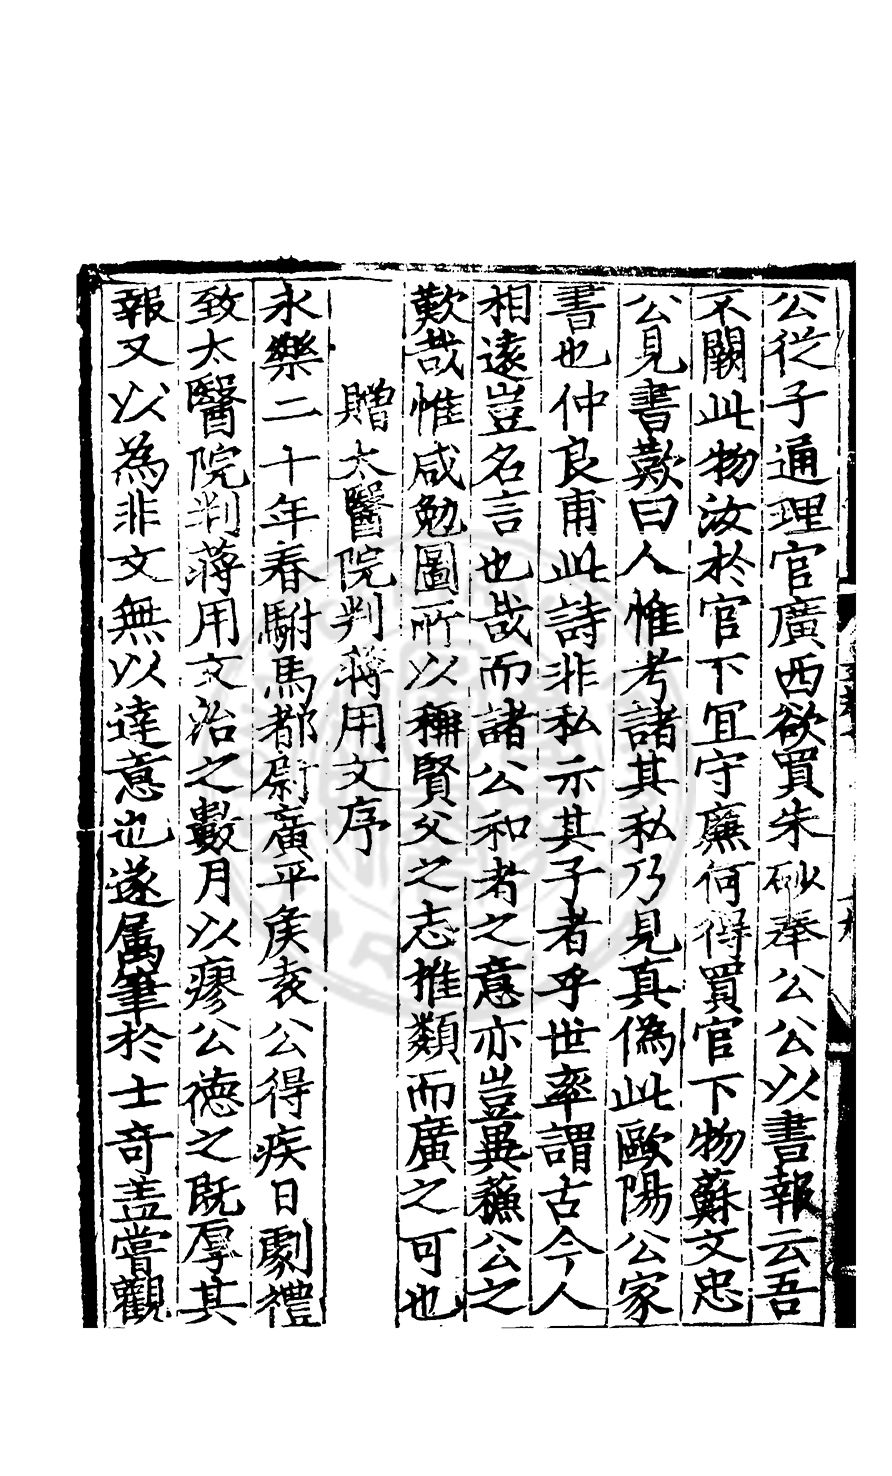 公從子通理官廣西欲買朱砂奉公公以書報云吾
不闕此物汝於官下冝守廉何得買官下物蘇文忠
公見書歎曰人惟考諸其私乃見真偽此歐陽公家
書也仲良甫此詩非私示其子者乎世率謂古今人
相遠豈名言也哉而諸公和者之意亦豈異蘓公之
歎哉惟咸勉圖所以稱賢父之志推類而廣之可也
贈太醫院判蔣用文序
永樂二十年春駙馬都尉廣平矦袁公得疾日劇禮
致太醫院判蔣用文治之數月以瘳公德之既厚其
報又以為非文無以達意也遂属筆於士奇盖嘗觀